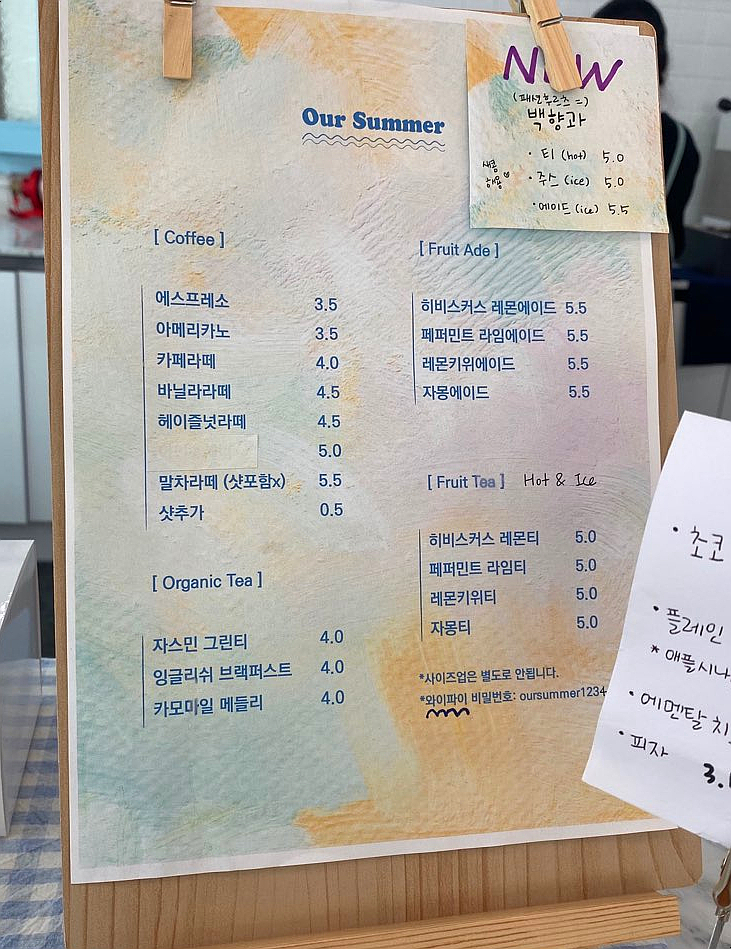 Our Summer
NEW
(패션후르츠 =)
백향과
새콤
하콤
· 티 (hot) 5.0
· 주스 (ice) 5.0
· 에이드 (ice) 5.5
[ Coffee ]
에스프레소 3.5
아메리카노 3.5
카페라떼 4.0
바닐라라떼 4.5
헤이즐넛라떼 4.5
5.0
말차라떼 (샷포함x) 5.5
샷추가 0.5
[ Organic Tea ]
자스민 그린티 4.0
잉글리쉬 브랙퍼스트 4.0
카모마일 메들리 4.0
[ Fruit Ade ]
히비스커스 레몬에이드 5.5
페퍼민트 라임에이드 5.5
레몬키위에이드 5.5
자몽에이드 5.5
[ Fruit Tea ] Hot & Ice
히비스커스 레몬티 5.0
페퍼민트 라임티 5.0
레몬키위티 5.0
자몽티 5.0
*사이즈업은 별도로 안됩니다.
*와이파이 비밀번호: oursummer1234
· 초코
· 플레인
* 애플시나
· 에멘탈 치
· 피자
3.